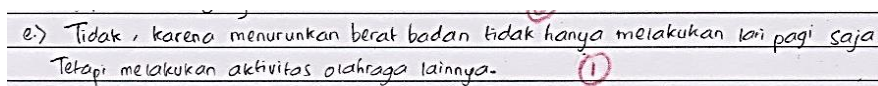 e.) Tidak, karena menurunkan berat badan tidak hanya melakukan lari pagi saja
Tetapi melakukan aktivitas olahraga lainnya. 1